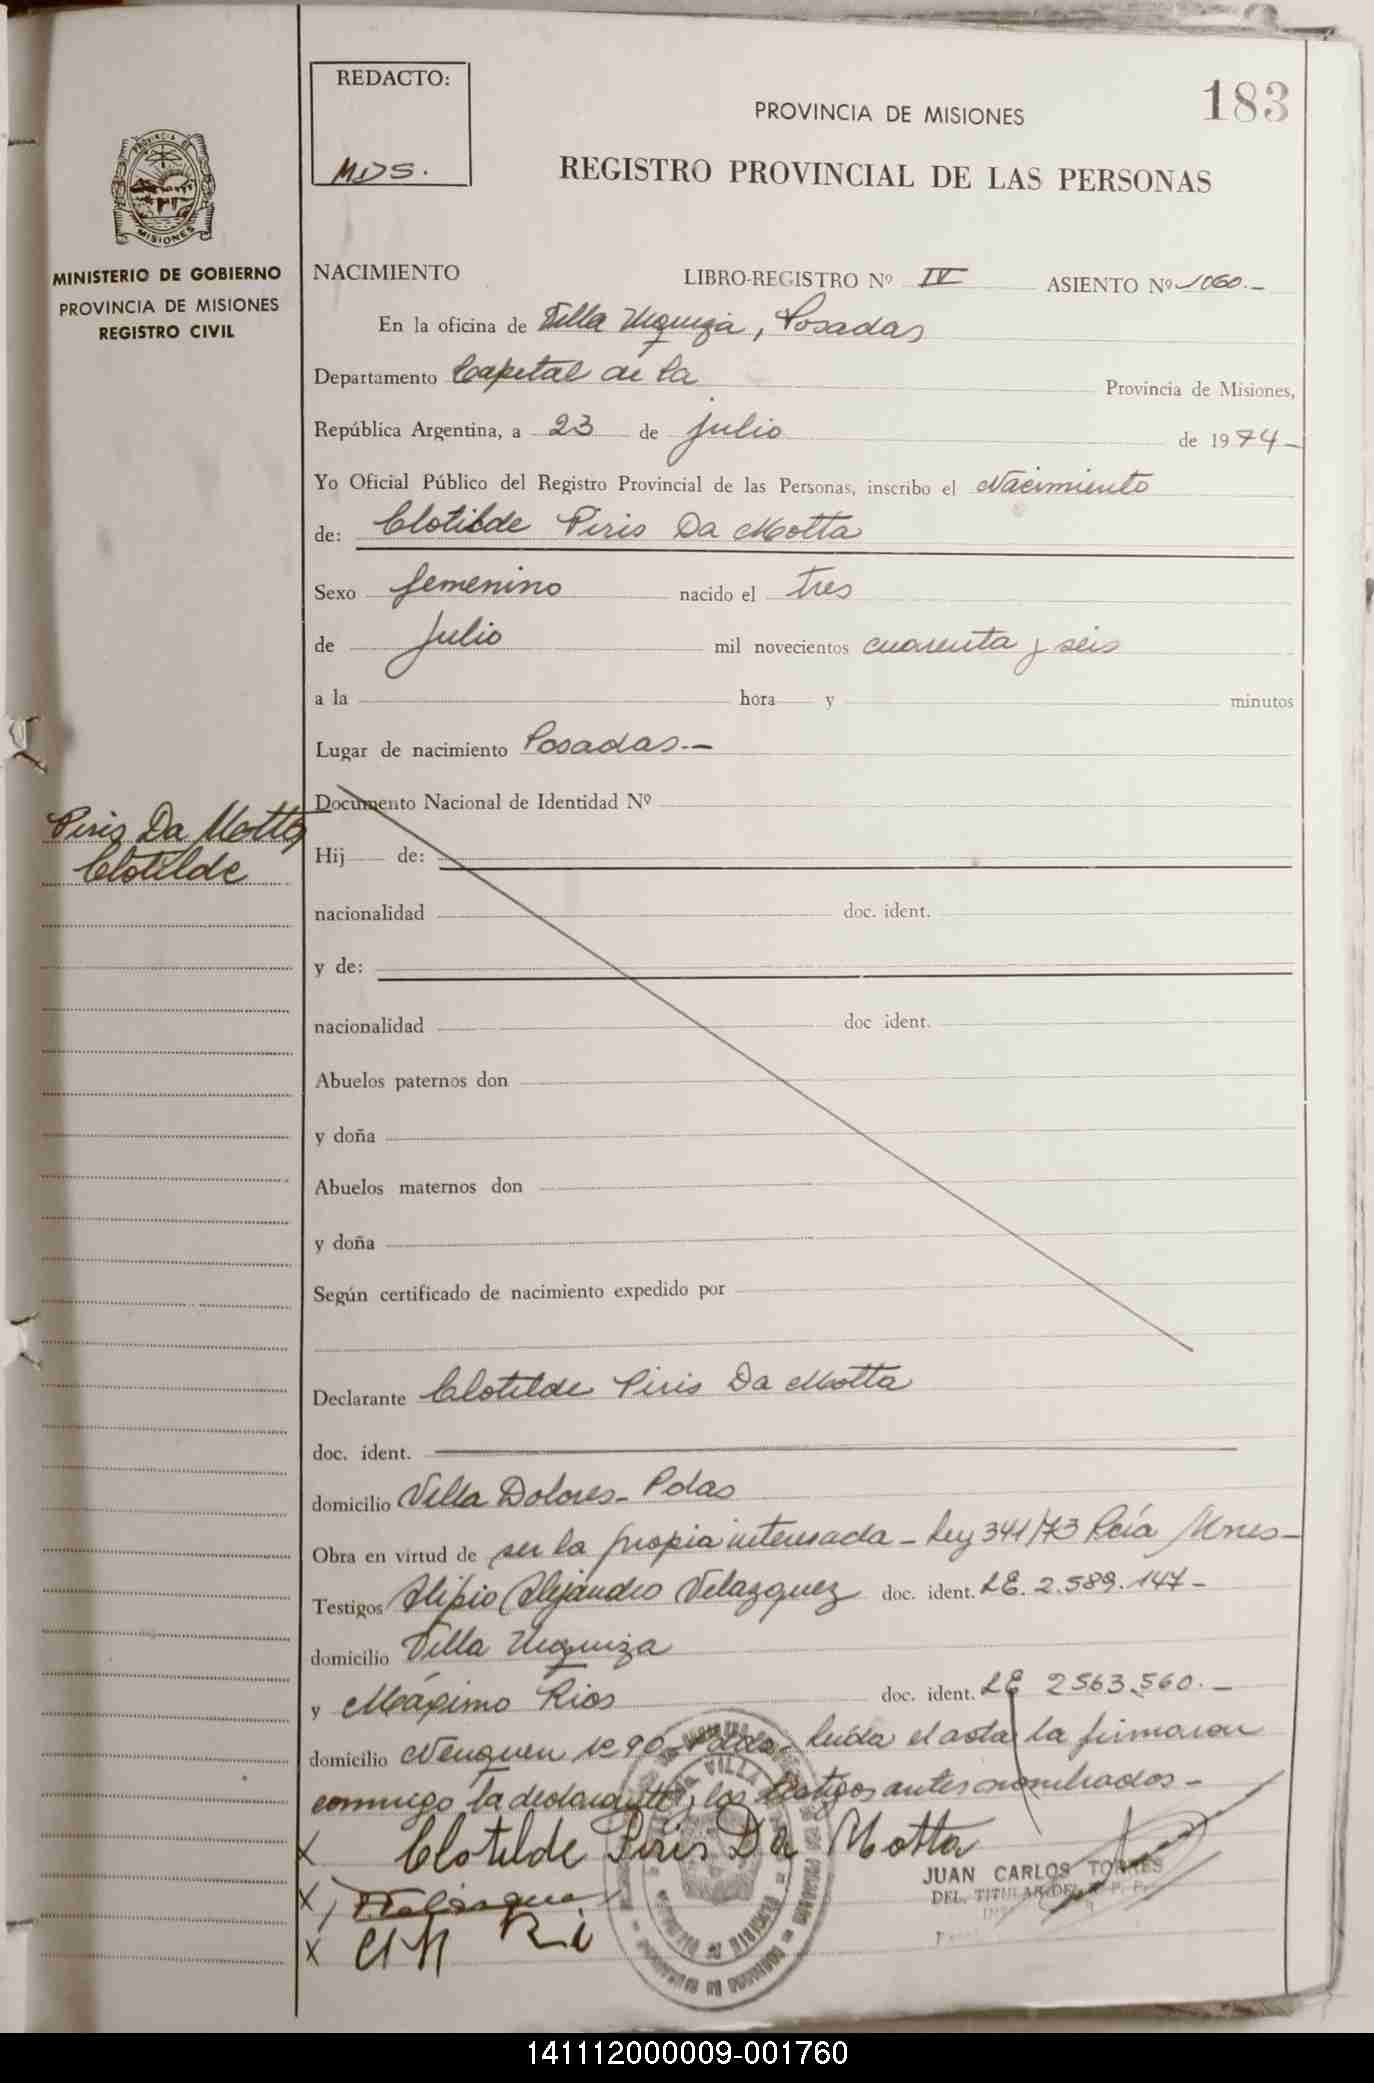 REDACTO:
MDS.
183
PROVINCIA DE MISIONES
REGISTRO PROVINCIAL DE LAS PERSONAS
PROVINCIA DE
MISIONES
MINISTERIO DE GOBIERNO
PROVINCIA DE MISIONES
REGISTRO CIVIL
NACIMIENTO LIBRO-REGISTRO Nº IV ASIENTO Nº 1060.-
En la oficina de Villa Urquiza, Posadas
Departamento Capital de la Provincia de Misiones,
República Argentina, a 23 de julio de 1974-
Yo Oficial Público del Registro Provincial de las Personas, inscribo el Nacimiento
de: Clotilde Piris Da Motta
Sexo femenino nacido el tres
de Julio mil novecientos cuarenta y seis
a la hora y minutos
Lugar de nacimiento Posadas.-
Documento Nacional de Identidad Nº
Piris Da Motta
Clotilde
Hij de:
nacionalidad doc. ident.
y de:
nacionalidad doc ident.
Abuelos paternos don
y doña
Abuelos maternos don
y doña
Según certificado de nacimiento expedido por
Declarante Clotilde Piris Da Motta
doc. ident.
domicilio Villa Dolores- Pdas
Obra en virtud de ser la propia interesada - Ley 341/73 Pcia Mnes-
Testigos Alipio Alejandro Velazquez doc. ident. LE. 2.589.147-
domicilio Villa Urquiza
y Máximo Rios doc. ident. LE 2563.560.-
domicilio Neuquen 1290 Pdas. Leída el acta la firmaron
conmigo la declarante y los testigos antes nombrados-
X Clotilde Piris Da Motta
X
X Ri
JUAN CARLOS TORRES
DEL. TITULAR DEL R. P. P.
141112000009-001760